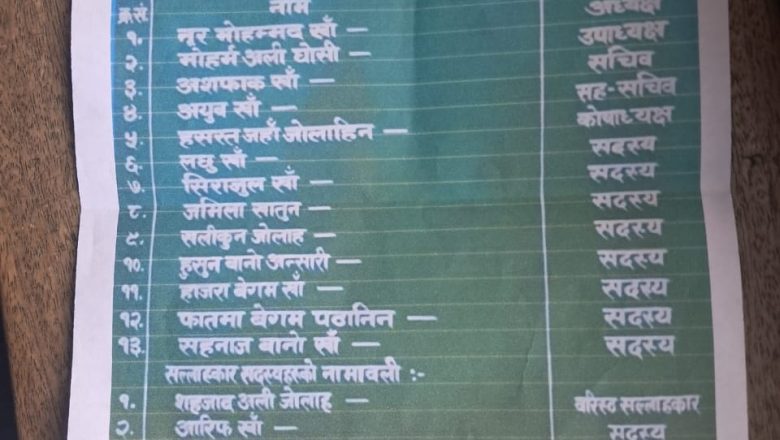 क्र.सं. नाम अध्यक्ष
१. नूर मोहम्मद खाँ — उपाध्यक्ष
२. मोहर्म अली घोसी — सचिव
३. अशफाक खाँ — सह-सचिव
४. अयुब खाँ — कोषाध्यक्ष
५. हसरत जहाँ जोलाहिन — सदस्य
६. लघु खाँ — सदस्य
७. सिराजुल खाँ — सदस्य
८. जमिला खातुन — सदस्य
९. सलीकुन जोलाह — सदस्य
१०. हुसुन बानो अन्सारी — सदस्य
११. हाजरा बेगम खाँ — सदस्य
१२. फातमा बेगम पठानिन — सदस्य
१३. सहनाज बानो खाँ — सदस्य
सल्लाहकार सदस्यहरुको नामावली :-
१. शहजाद अली जोलाह — वरिस्ठ सल्लाहकार
२. आरिफ खाँ — सदस्य